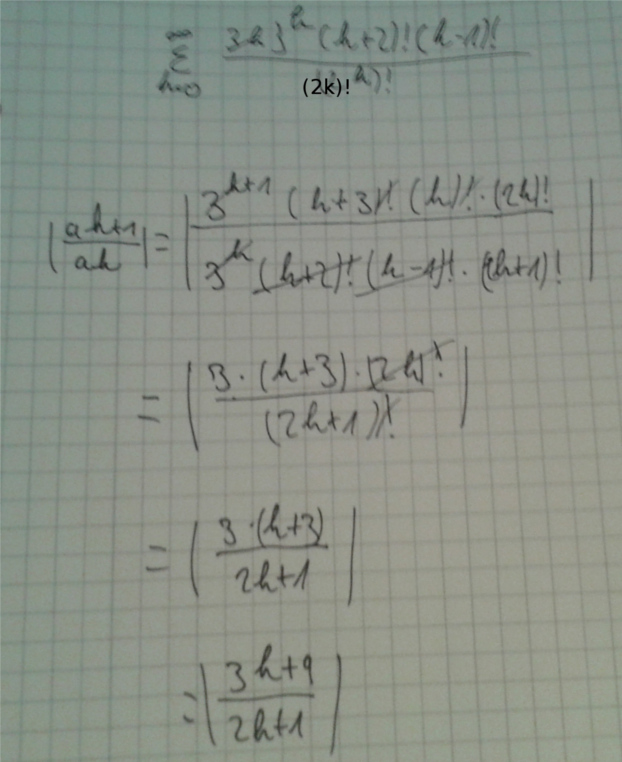 ∞
Σ 3k 3^k (k+2)! (k-1)!
k=0 (2k)! k)!
|ak+1 / ak| = | 3^k+1 (k+3)! (k)! · (2k)!
3^k (k+2)! (k-1)! · (2k+1)! |
= | 3 · (k+3) · (2k)!
(2k+1)! |
= | 3 · (k+3)
2k+1 |
= | 3k+9
2k+1 |